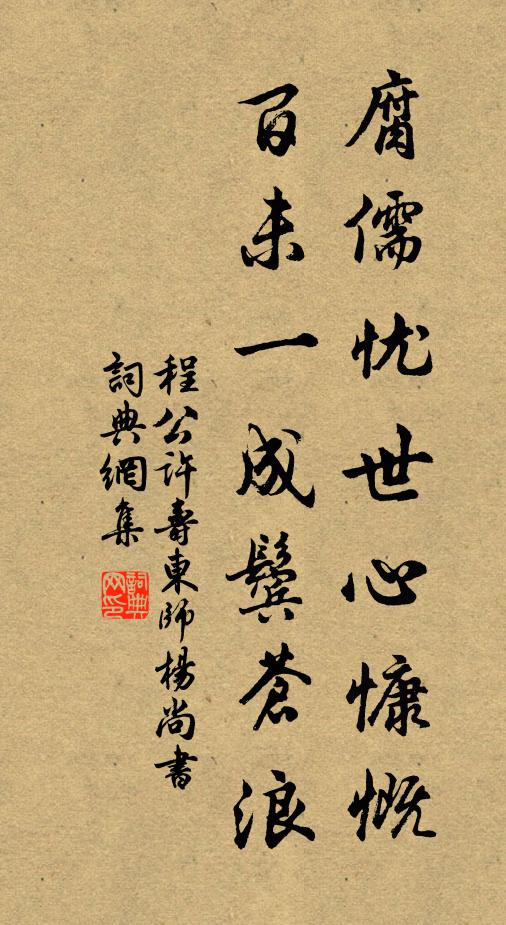 腐儒忧世心慷慨
百未一成鬓苍浪
程公许寿东师杨尚书
词典网集
词典网印